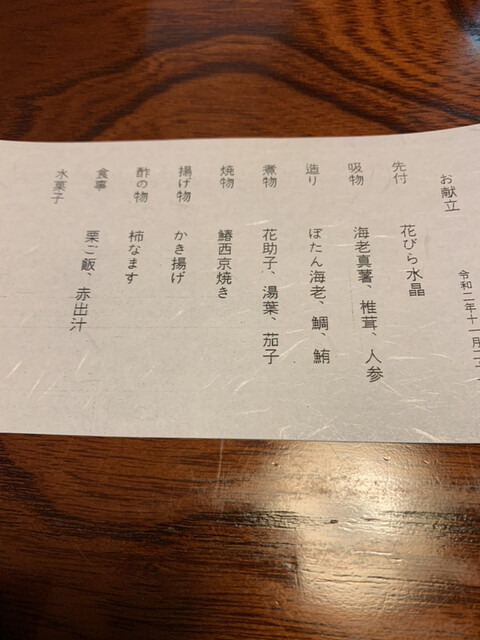 お献立
令和二年十一月二
先付 花びら水晶
吸物 海老真薯、椎茸、人参
造り ぼたん海老、鯛、鮪
煮物 花助子、湯葉、茄子
焼物 鰆西京焼き
揚げ物 かき揚げ
酢の物 柿なます
食事 栗ご飯、赤出汁
水菓子